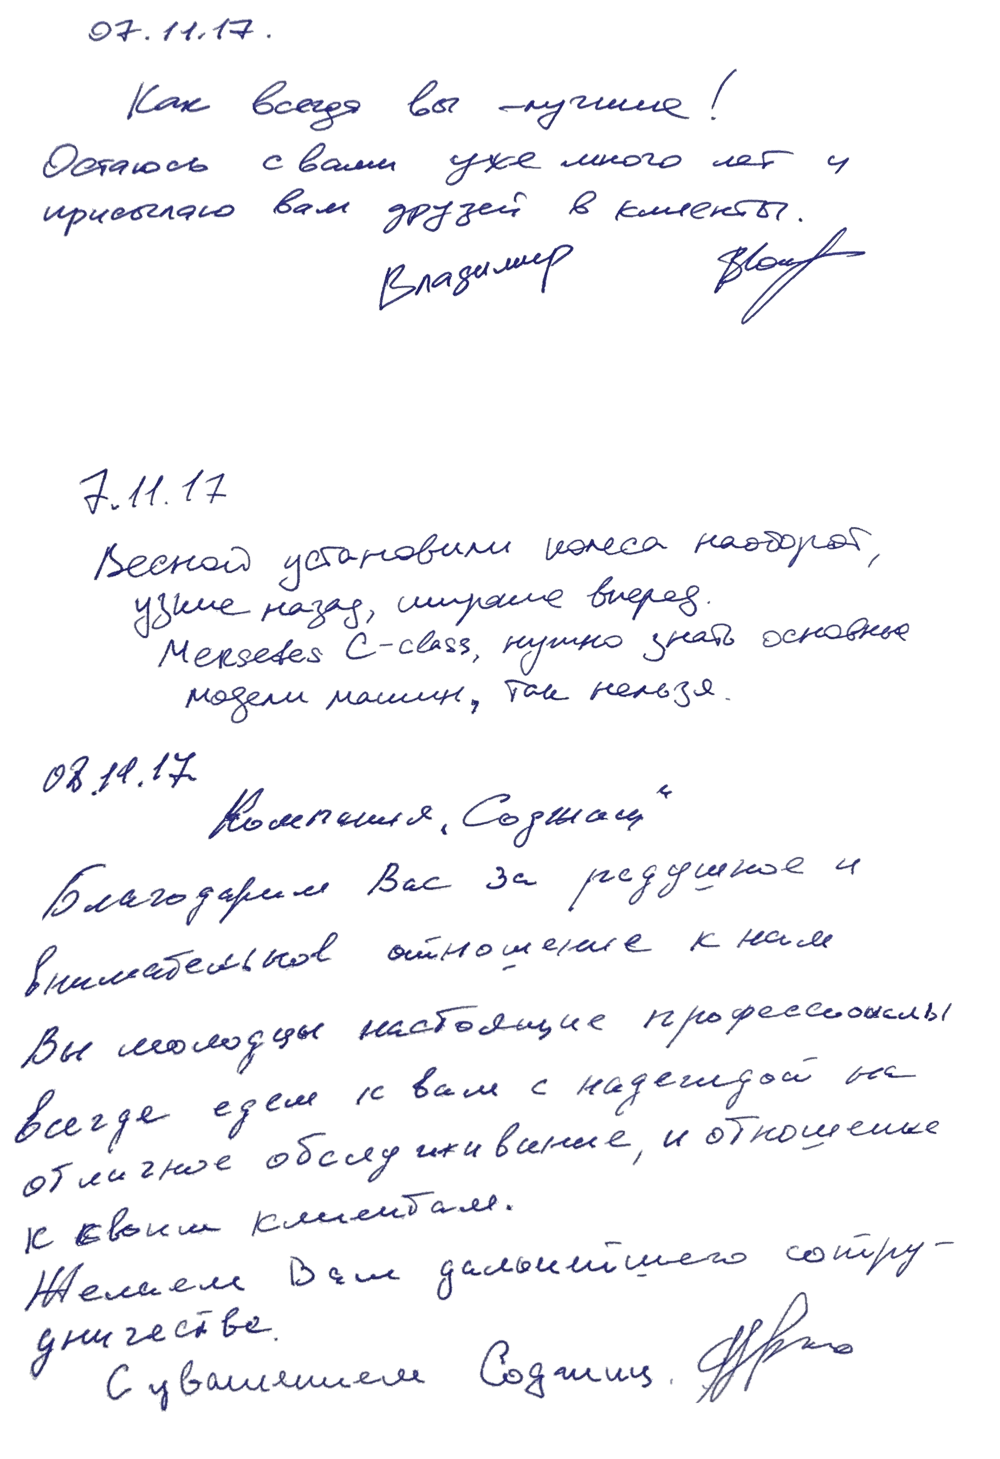 07.11.17.
Как всегда вы - лучшие!
Остаюсь с вами уже много лет и
присылаю вам друзей в клиенты.
Владимир
7.11.17
Весной установили колеса наоборот,
узкие назад, широкие вперед.
Mersedes C-class, нужно знать основные
модели машин, так нельзя.
08.11.17
Компания „Соджиц“
Благодарим Вас за радушное и
внимательное отношение к нам
Вы молодцы настоящие профессионалы
всегда едем к вам с надеждой на
отличное обслуживание, и отношение
к своим клиентам.
Желаем Вам дальнейшего сотру-
дничества.
С уважением Соджиц.